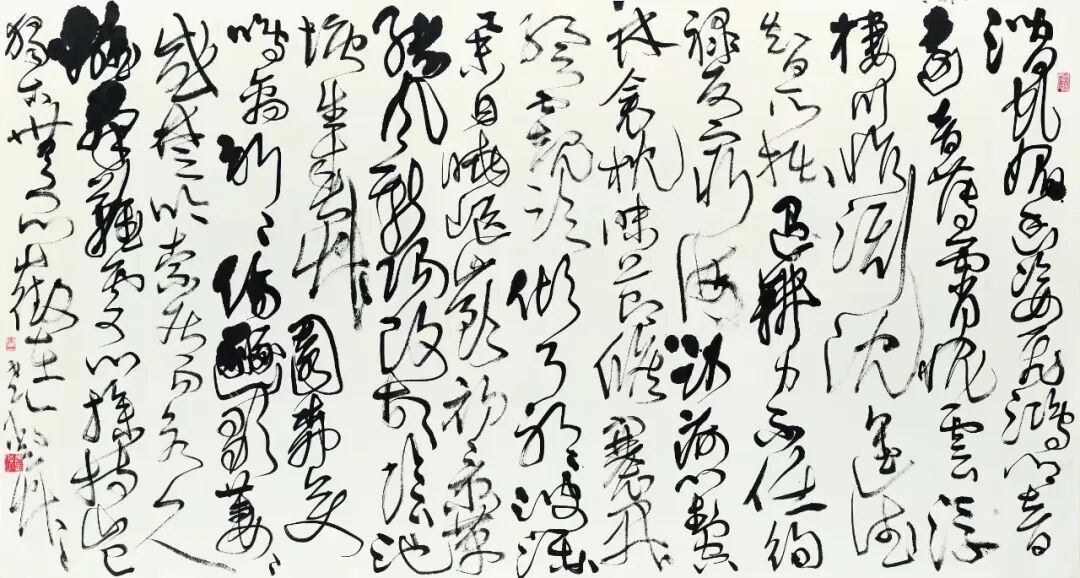 潜虬媚幽姿飞鸿响
远音薄霄愧云浮
栖川怍渊沉进德
智所拙退耕力不任徇
禄反穷海卧疴对空
林衾枕昧节候褰开
暂窥临倾耳聆波澜
举目眺岖嵚初景革
绪风新阳改故阴池
塘生春草园柳变
鸣禽祁祁伤豳歌萋萋
感楚吟索居易永久
离群难处心操持岂
独古无闷征在